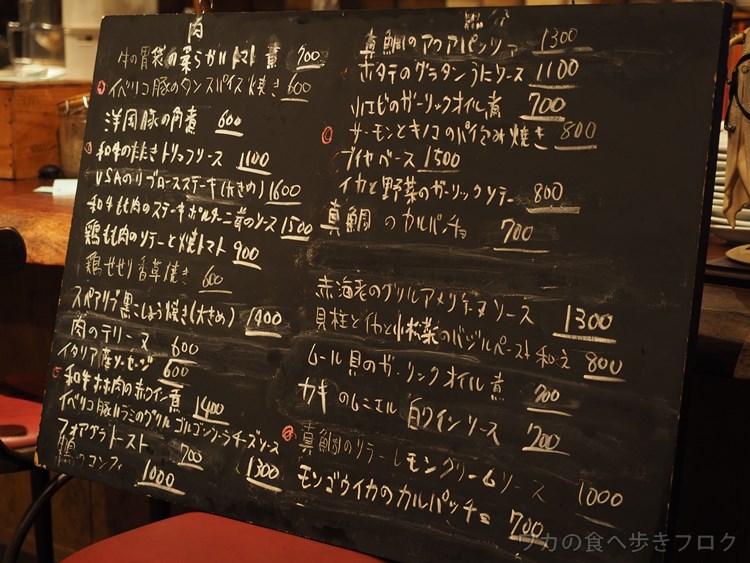 肉
牛の胃袋の柔らかいトマト煮 700
イベリコ豚のタンスパイス焼き 600
洋国豚の角煮 600
和牛のたたきトリュフソース 1100
USAのリブロースステーキ(大きめ) 1600
和牛もも肉のステーキポルチーニ茸のソース 1500
鶏もも肉のソテーと焼トマト 900
鶏せせり香草焼き 600
スペアリブ黒こしょう焼き(大きめ) 1400
肉のテリーヌ 600
イタリア産ソーセージ 600
和牛ホホ肉の赤ワイン煮 1400
イベリコ豚のグリルゴルゴンゾーラチーズソース 1300
フォアグラトースト 700
鴨のコンフィ 1000
真鯛のアクアパッツァ 1300
ホタテのグラタンうにソース 1100
小エビのガーリックオイル煮 700
サーモンとキノコのパイ包み焼き 800
ブイヤベース 1500
イカと野菜のガーリックソテー 800
真鯛のカルパッチョ 700
赤海老のグリルアメリケーヌソース 1300
貝柱とイカと小松菜のバジルペースト和え 800
ムール貝のガーリックオイル煮 700
カキのムニエル白ワインソース 700
真鯛のソテーレモンクリームソース 1000
モンゴウイカのカルパッチョ 700
ワカの食べ歩きブログ